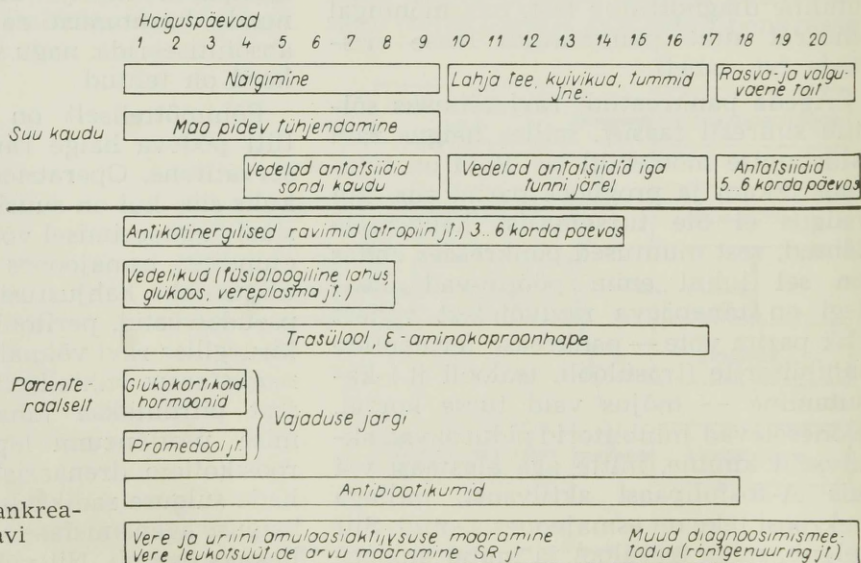 Haiguspäevad
1 2 3 4 5 6 7 8 9 10 11 12 13 14 15 16 17 18 19 20
Nälgimine
Lahja tee, kuivikud, tummid
jne.
Rasva-ja valgu-
vaene toit
Suu kaudu
Mao pidev tühjendamine
Vedelad antatsiidid
sondi kaudu
Vedelad antatsiidid iga
tunni järel
Antatsiidid
5...6 korda päevas
Antikolinergilised ravimid (atropiin jt.) 3...6 korda päevas
Vedelikud (füsioloogiline lahus,
glükoos, vereplasma jt.)
Trasülool, Ɛ-aminokaproonhape
Parente-
raalselt
Glükokortikoid-
hormoonid
Promedool jt.
Vajaduse järgi
Antibiootikumid
ankrea-
avi
Vere ja uriini amülaasiaktiivsuse määramine
Vere leukotsüütide arvu määramine SR jt
Muud diagnoosimismee-
todid (röntgenuuring jt)